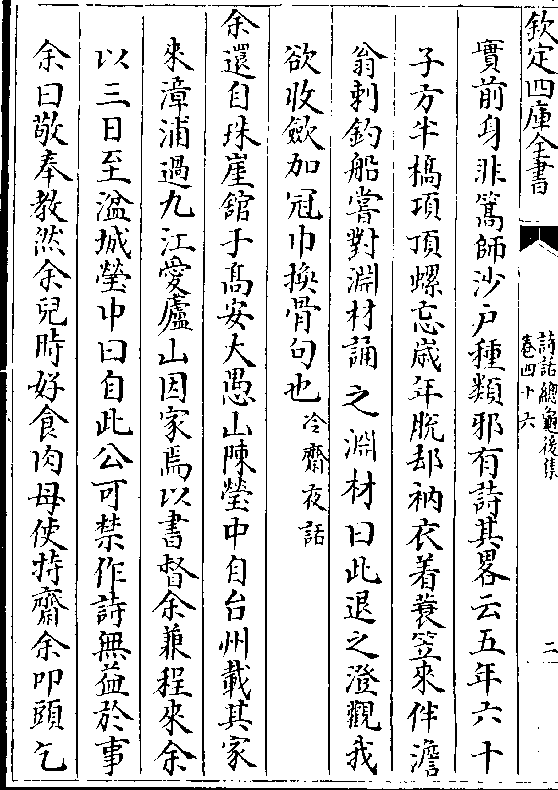 欽定四庫全書
詩話總龜後集
卷四十六
二
實前身非篙師沙戶種類邪有詩其畧云五年六十
子方半槁項頂螺忘嵗年脫却衲衣着蓑笠來伴澹
翁刺釣船嘗對淵材誦之淵材曰此退之澄觀我
欲收歛加冠巾換骨句也冷齋夜話
余還自珠崖舘于髙安大愚山陳瑩中自台州載其家
來漳浦過九江愛廬山因家焉以書督余兼程來余
以三日至湓城瑩中曰自此公可禁作詩無益於事
余曰敬奉教然余兒時好食肉母使持齋余叩頭乞